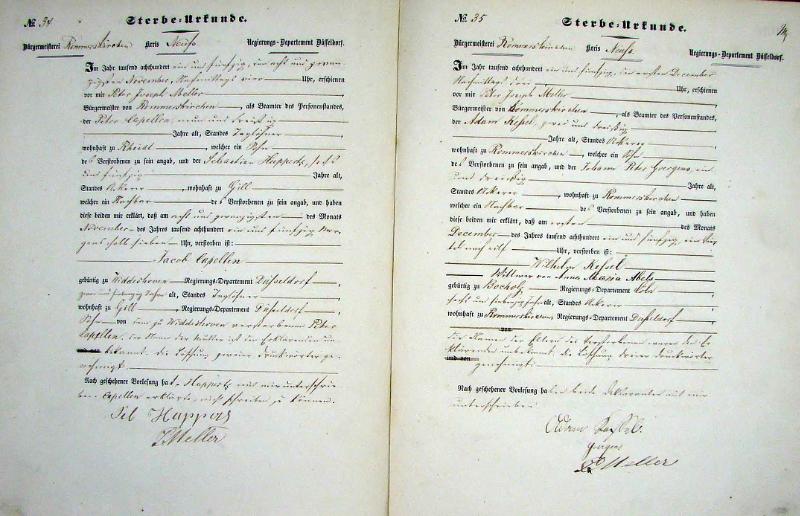 № 34
Sterbe-Urkunde.
Bürgermeisterei Rommerskirchen Kreis Neuss Regierungs-Departement Düsseldorf.
Im Jahr tausend achthundert ein und fünfzig, den acht und zwan-
zigsten November, Nachmittags vier Uhr, erschienen
vor mir Peter Joseph Meller
Bürgermeister von Rommerskirchen, als Beamter des Personenstandes,
der Peter Capellen, ein und dreißig
Jahre alt, Standes Taglöhner
wohnhaft zu welcher ein Sohn
des Verstorbenen zu sein angab, und der Sebastian Huppertz, sechs
und fünfzig Jahre alt,
Standes Ackerer, wohnhaft zu Gill
welcher ein Nachbar des Verstorbenen zu sein angab, und haben
diese beiden mir erklärt, daß am acht und zwanzigsten des Monats
November des Jahres tausend achthundert ein und fünfzig Mor-
gens halb sieben Uhr, verstorben ist:
Jacob Capellen
gebürtig zu Widdeshoven Regierungs-Departement Düsseldorf
Jahre alt, Standes Taglöhner
wohnhaft zu Gill, Regierungs-Departement Düsseldorf
Sohn von dem zu Widdeshoven verstorbenen Peter
Capellen, der Name der Mutter ist den Erklärenden un-
bekannt. die Löschung zweier Druckwörter ge-
nehmigt.
Nach geschehener Vorlesung hat Huppertz mit mir unterschrie-
ben Capellen erklärte, nicht schreiben zu können.
Huppertz
PMeller
№ 35
Sterbe-Urkunde.
Bürgermeisterei Rommerskirchen Kreis Neuss Regierungs-Departement Düsseldorf.
Im Jahr tausend achthundert ein und fünfzig, den ersten December
Nachmittags drei Uhr, erschienen
vor mir Peter Joseph Meller
Bürgermeister von Rommerskirchen, als Beamter des Personenstandes,
der Adam Kessel, zwei und dreißig
Jahre alt, Standes Ackerer
wohnhaft zu Rommerskirchen, welcher ein Sohn
des Verstorbenen zu sein angab, und der Johann Peter Goergens, ein
und dreißig Jahre alt,
Standes Ackerer, wohnhaft zu Rommerskirchen
welcher ein Nachbar des Verstorbenen zu sein angab, und haben
diese beiden mir erklärt, daß am ersten des Monats
December des Jahres tausend achthundert ein und fünfzig, ein Vier-
tel nach elf Uhr, verstorben ist:
Wilhelm Kessel
Wittwer von Anna Maria Abels
gebürtig zu Regierungs-Departement Cöln
Jahre alt, Standes Ackerer
wohnhaft zu Rommerskirchen, Regierungs-Departement Düsseldorf
von
die Namen der Eltern des Verstorbenen waren den Er-
klärenden unbekannt die Löschung dreier Druckwörter
und von genehmigt.
Nach geschehener Vorlesung haben beide Deklaranten mit mir
unterschrieben
Adam
PMeller